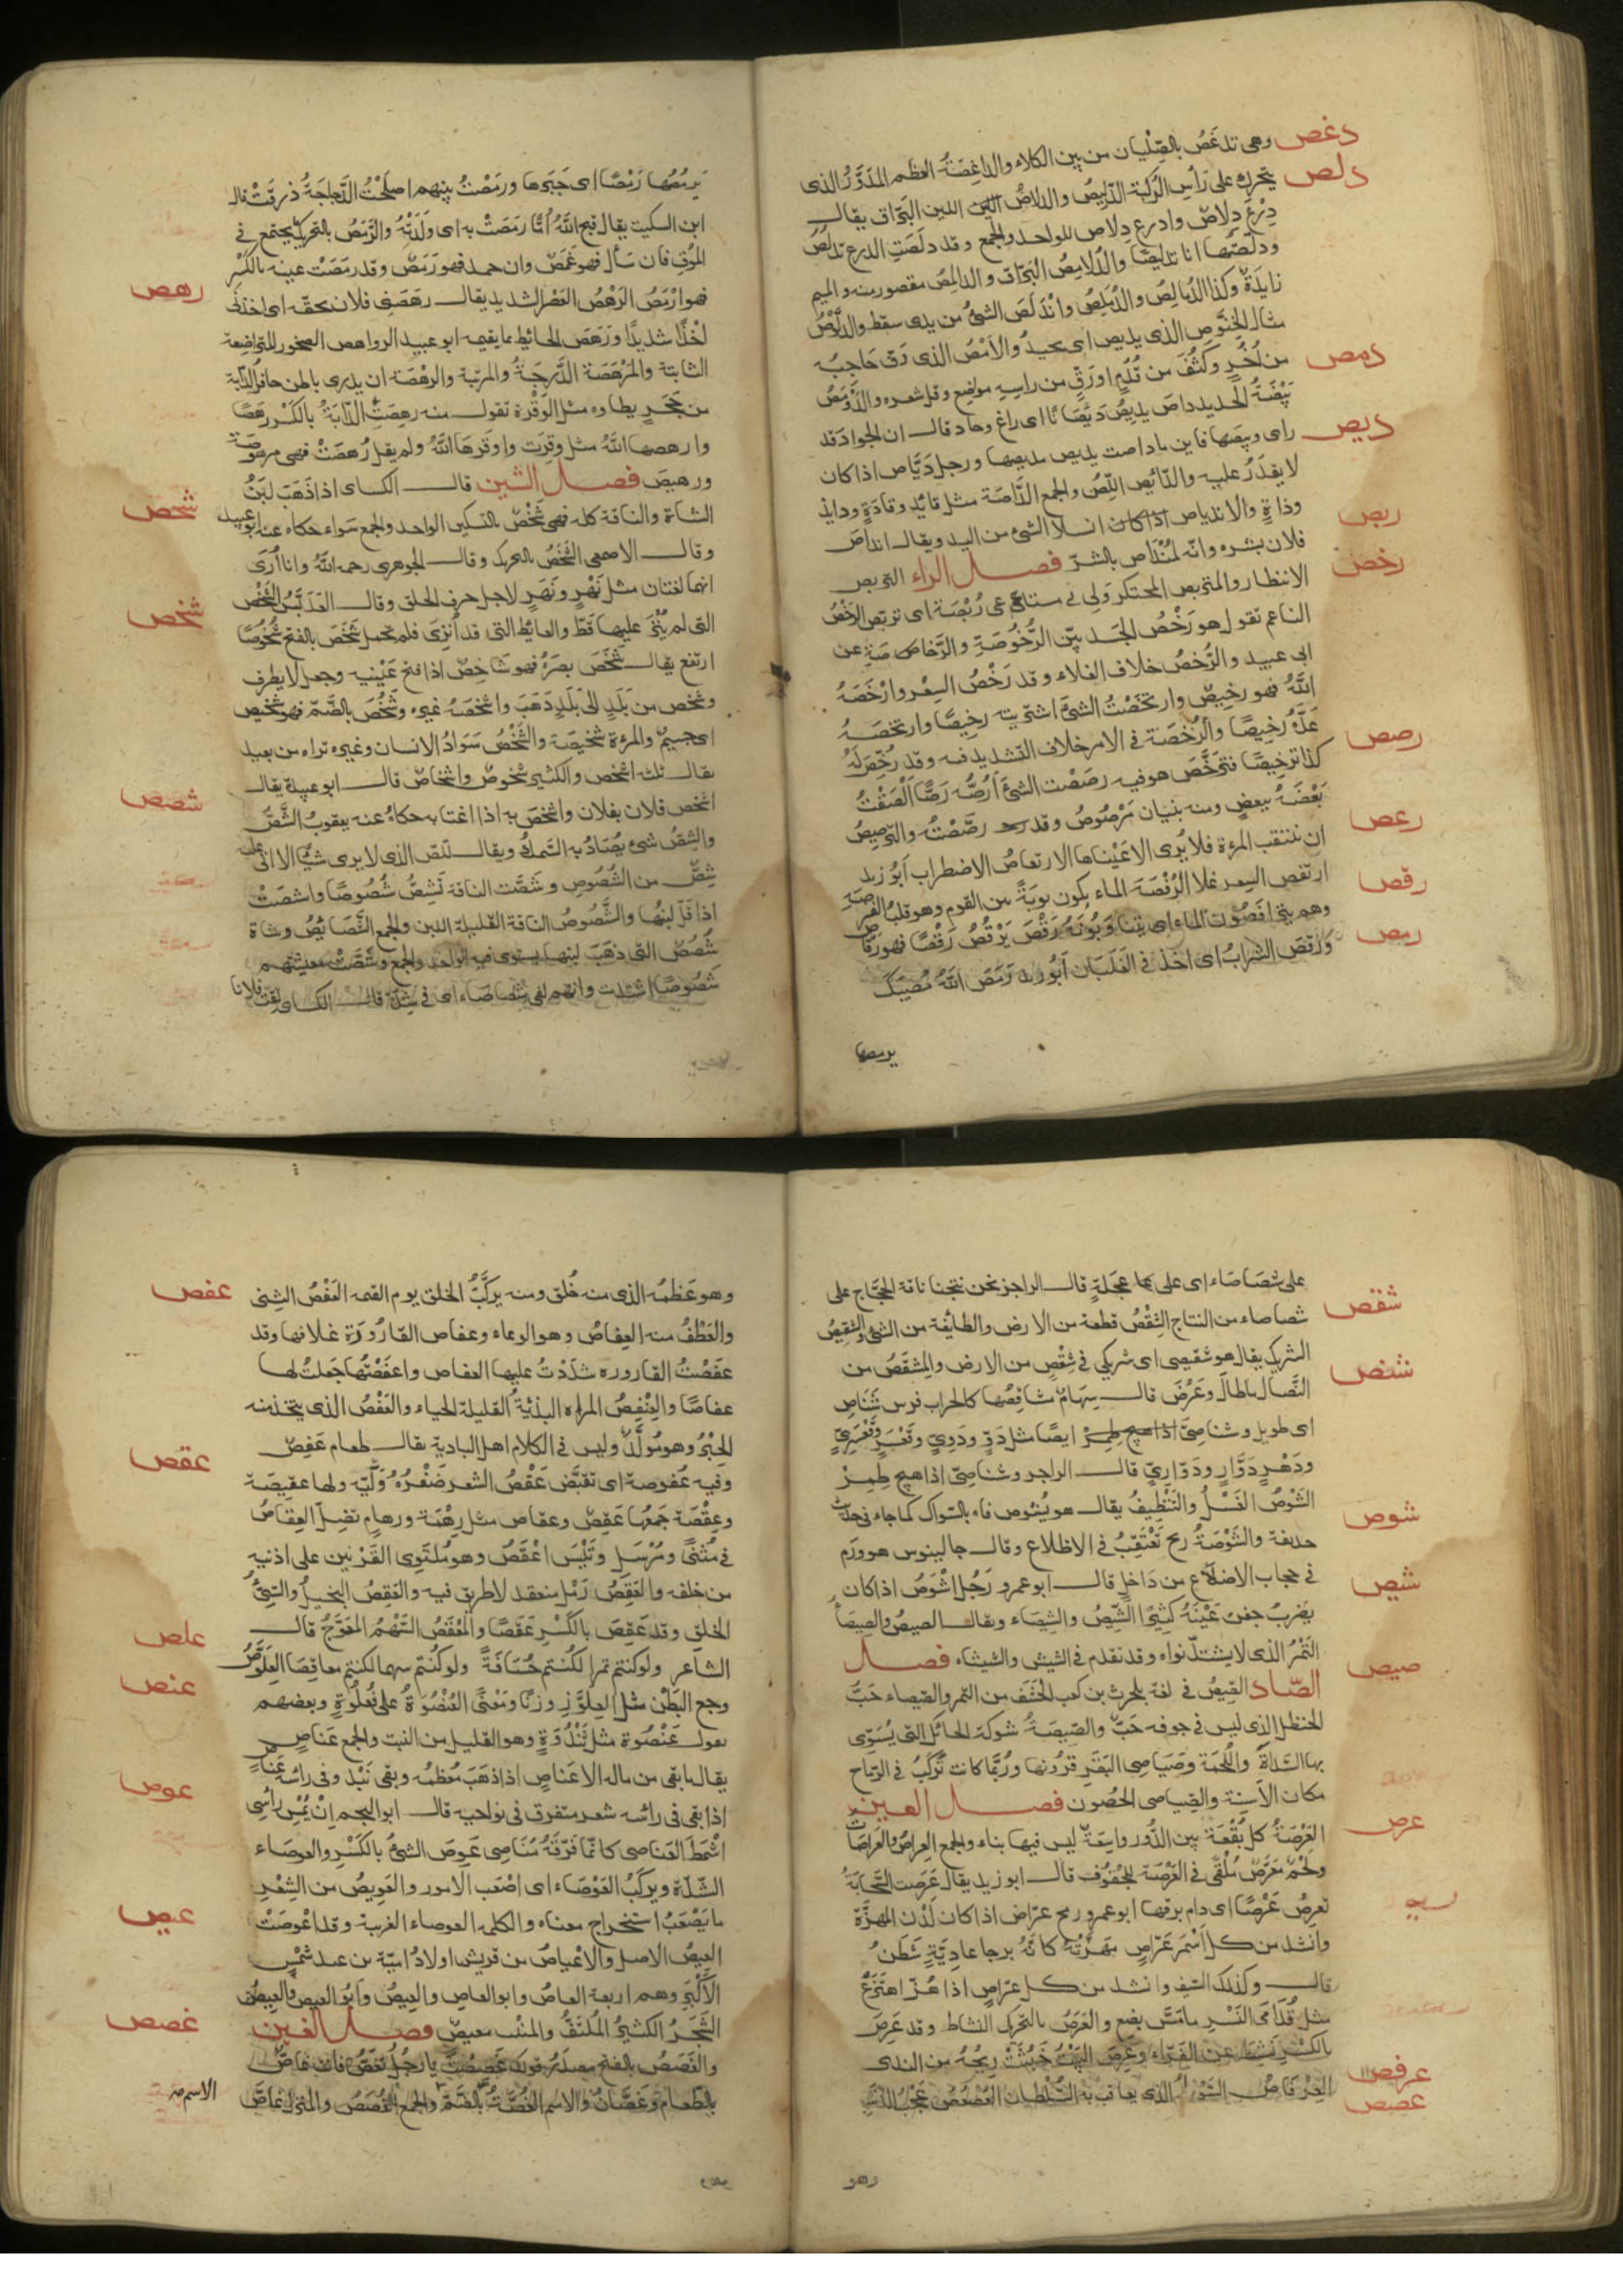 دغص وهى تدغَصُ بالصِّلّيان من بين الكلاء والداغِصَةُ العظم المدَوَّرُ الذى
دلص يتحرك على رأسِ الرُكبة الدّليصُ والدلاصُ اللين البرّاق يقال
دِرْعٌ دِلاصٌ وادرع دِلاص للواحد والجمع وقد دلَصَتِ الدرع تدلُصُ
ودلّصتُها انا تدليصًا والدُلامِصُ البَرّاق والدلمِصُ مقصور منه والميم
زايدةٌ وكذا الدُمالِصُ والدُمَلِصُ واندلَصَ الشئ من يدى سقط والدِلَّوْصُ
مثال الخِنَّوصِ الذى يديص اى يحيدُ والادْمَصُ الذى رَقّ حَاجبُه
دمص من اُخُرٍ وكثُفَ من قُدُمٍ اورَقَّ من راسِهِ مواضِع وقل شعره والدَّوْمَصُ
بَيْضَةُ الحديد داصَ يديصُ دَيَصَانًا اى راغ وحاد قال ان الجوادَ قد
ديص راى وبيصَها فاين ما داصت يديص مديصها ورجل دَيَّاص اذا كان
لا يقدَرُ عليه والدّائِص اللِّصّ والجمع الدَّاصَة مثل قائِد وقادَةٍ وذايذ
وذاةٍ والاندياص انسلال الشئ من اليد ويقال انداص
ربص فلان بشره وانّه لمُنْدَاص بالشرّ فصل الراء التربص
رخص الانتظار والمتربص المحتكر ولى فى متاعى رُبْصَة اى تربّص الرَخْصُ
الناعم تقول هو رَخْصُ الجَسَد بيّن الرُّخُوصَةِ والرَّخاصِ عن
ابى عبيد والرُخصُ خلاف الغلاء وقد رَخُصَ السِعْر وارْخَصَهُ
اللّهُ فهو رخيصٌ وارتخَصْتُ الشئَ اشتريته رخِيصًا وارتخصَهُ
عَدَّهُ رَخِيصًا والرُخْصَة فى الامر خلاف التشديد فيه وقد رُخِّصَ لَهُ
رصص كذا ترخِيصًا فترخَّصَ هو فيه رصَصْت الشئَ اَرُصُّه رَصًّا الْصَقْتُ
بَعْضَهُ ببعضٍ ومنه بنيان مَرْصُوصٌ وقد رصّصْتُ والترصيصُ
رعص ان تنتقب المرءة فلا يُرى الا عَيْناها الارتعاصُ الاضطراب ابُو زيد
رقص ارتقص السعر غلا الرُفْصَة الماء يكون نوبَةً بين القوم وهو قلبُ الفُرصة
وهم يترافصون الماء اى يتناوَبُونَهُ رَقَصَ يَرْقُصُ رَقْصًا فهو رقّاص
رمص ورقصَ الشرابُ اى اخذ فى الغلَيَان ابُو زيد رَمَصَ اللّهُ مُصيبتكَ
يرمصها
يَرمُصُها رَمْصًا اى جَبَرَها ورَمَصْتُ بينهم اصلَحْتُ الدَّجاجَةُ ذرقَتْ قال
ابن السكيت يقال قبح اللّهُ اُمًّا رمَصَتْ به اى ولَدَتْهُ والرَّمَصُ بالتحريك يجتمع فى
المُوقِ فان سَأل فهو غَمَصٌ وان جمد فهو رَمَصٌ وقد رمِصَتْ عينه بالكَسْرِ
رهص فهو ارْمَصُ الرَهْصُ العَصْر الشديد يقال رهَصَنِى فلان بحقّه اى اخذنى
اخْذًا شديدًا ورَهَصَ الحائط بما يقيمه ابو عبيد الرواهص الصخور المتراصِفة
الثابتة والمَرْهَصَة الدَّرجَةُ والمرتبة والرهْصَة ان يدوى باطن حافر الدابّة
من حجَرٍ يطاوه مثل الوَقْرة تقول منه رهِصَتِ الدّابَةُ بالكَسْر رهَصًا
وارهصها اللّهُ مثل وقِرَت واوقَرهَا اللّهُ ولم يقل رُهِصَتْ فهى مرهوصة
شحص ورهيصٌ فصل الشين قال الكساى اذا ذَهَبَ لبَنُ
الشاة والناقة كله فهى شَحْصٌ بالتسكين الواحد والجمع سَواء حكاه عنه ابو عبيد
وقال الاصمعى الشحَصُ بالتحريك وقال الجوهرى رحمه اللّهُ وانا ارَى
انهما لغتان مثل نَهْرٍ ونَهَرٍ لاجل حرف الحلق وقال العَدَبَّسُ الشَّحْصُ
شخص التى لم يُنْزَ عليها قَطّ والعائِط التى قد اُنْزِىَ فلم تحمل شَخَصَ بالفتح شُخُوصًا
ارتفع يقال شَخَصَ بصَرُهُ فهو شَاخِصٌ اذا فتح عَيْنيه وجعل لا يطرف
وشخص من بَلَدٍ الى بَلَدٍ ذَهَبَ واشخصَهُ غيره وشَخُصَ بالضّم فهو شخيص
اى جسيمٌ والمرءة شخيصَة والشَّخْصُ سَوَادُ الانسان وغيره تراه من بعيد
يقال ثلثة اشخص والكثير شخوصٌ واشخاصٌ قال ابو عبيدة يقال
شصص اشخص فلان بفلان واشخصَ به اذا اغتابه حكاهُ عنه يعقوبُ الشَّصُّ
والشِصُّ شئ يُصَادُ به السَّمك ويقال للّصّ الذى لا يرى شيئًا الا اتى عليه
شِصٌّ من الشُصُوص وشصَّت الناقة تشِصُّ شُصُوصًا واشصَتْ
اذا قَلّ لبنُها والشَّصُوصُ الناقة القليلة اللبن والجمع الشَّصَائِصُ وشاة
شُصُصٌ التى ذهَبَ لبنها يستوى فيه الواحد والجمع وشَصَّتْ معيشتهم
شُصُوصًا اشتدت وانهم لفى شَصَاصَاء اى فى شِدّة قال الكساى لقيت فلانا
على شَصَاصَاء اى على عَجَلَةٍ قال الراجز نحن نتجنا ناقة الحَجَّاج على
شقص شصاصاء من النتاج الشِقْصُ قطعة من الارض والطائِفة من الشئ والشقيصُ
الشريك يقال هو شقيصى اى شريكى فى شِقْصٍ من الارض والمِشْقَصُ من
شنص النّصَال ما طالَ وعَرُضَ قال سِهَامٌ مشاقِصُها كالحراب فرس شَنَاصٍ
اى طويل وشناصِىٌّ ايضًا مثل دَوٍّ ودَوِىٍّ وقَعْسَرٍ وقَعْسَرِىٍّ
ودَهْرٍ دَوَّارٍ ودَوّارِىٍّ قال الراجز وشناصِىّ اذا هيج طِمِرّ
شوص الشَوْصُ الغَسْلُ والتَّنْظِيفُ يقال هو يَشُوص فاه بالسّواك كما جاء فى حديث
حذيفة والشَوْصَةُ ريح تَعْتَقِبُ فى الاضلاع وقال جالينوس هو ورَم
شيص فى حجاب الاضلاع من دَاخل قال ابو عمرو رَجُل اشْوَصُ اذا كان
يضرِبُ جفن عَيْنَهُ كثيرًا الشِّيصُ والشِيصَاء ويقال الصيص والصيصاءُ
صيص التَمْرُ الذى لا يشتدّ نواه وقد تقدم فى الشيش والشيشاء فصل
الصّاد الصِّيصُ فى لغة بلحرث بن كعب الحَشَف من التمر والصيصاء حَبُّ
الحنظل الذى ليس فى جوفه حَبٌّ والصِّيصَةُ شوكة الحائك التى يُسَوّى
بها السَّدَاةُ واللُحمَة وصَيَاصِى البَقَرِ قرُونها ورُبّما كانت تُركَّبُ فى الرّماح
مكان الاَسِنّة والصِياصى الحُصُون فصل العين
عرص العَرْصَةُ كلّ بُقْعَة بين الدُّور واسِعَةٌ ليس فيها بناء والجمع العِراصُ والعَرَصَاتُ
ولحْم مَعَرَّصٌ مُلْقًى فى العَرْصَة للجُفُوف قال ابو زيد يقال عَرِصَت السَّحَابَةُ
تعرِصُ عَرْصًا اى دام برقها ابو عمرو رمح عرّاص اذا كان لَدْنَ المهزَّة
وانشد من كل اسْمَرَ عَرّاصٍ مَهَزَّتُهُ كانّه برجا عادِيَّةٍ شَطَنُ
قال وكذلك السّيف وانشد من كل عرّاصٍ اذا هُزّ اهتزعْ
مثل قُدَامَى النَسْرِ ما مَسَّ بضع والعَرَصُ بالتحريك النشاط وقد عَرِصَ
بالكَسْرِ نَشِطَ عن الفَرّاء وعَرِصَ البَيْتُ خَبُثَتْ رِيحُهُ من الندى
عرفص العِرْفَاصُ السَّوْطُ الذى يعاقب به السُّلطان
عصص العُصْعُصُ عَجْبُ الذنَبِ
وهو
وهو عَظْمُه الذى منه خُلِقَ ومنه يركَّبُ الخلق يوم القيمه
عفص العَفْصُ الثِنىُ
والعَطْفُ منه العِفاصُ وهو الوعاء وعفاص القارُورَة غلافها وقد
عفَصْتُ القاروره شدَدْتُ عليها العفاص واعفَصْتُها جَعلتُ لها
عفاصًا والعِنْفِصُ المراه البذيَّةُ القليلة الحياء والعَفْصُ الذى يتخذ منه
الحِبْرُ وهو مُولَّدٌ وليس فى الكلام اهل البادية يقال طعام عَفِصٌ
عقص وفيه عُفوصة اى تقبَّض عَقْصُ الشعر ضَفْرُهُ ولَيّه ولها عقيصَة
وعِقْصَة جَمْعُها عَقِصٌ وعقاص مثل رِهْمَة ورهامٍ تضلّ العِقَاصُ
فى مُثنًّى ومُرْسَلِ وتَيْسٌ اعْقَصُ وهو ملتوى القَرْنَين على اذنيه
من خلفه والعَقِصُ رَمْل منعقد لا طريق فيه والعَقِصُ البخيلُ والسّيّئُ
الخلق وقد عَقِصَ بالكَسْرِ عَقَصًا والمِعْقَصُ السَّهْمُ المعْوَجّ قال
علص الشاعر ولو كنتم تمرا لكُنتم حُسَافَةً ولو كُنتم سهما لكنتم معاقِصَا العِلَّوْصُ
عنص وجع البَطْن مثل العِلوْز وزنًا ومَعْنًى العُنْصُوَةُ على فُعلُوَةٍ وبعضهم
يقول عَنْصُوة مثل ثَنْدُوَةٍ وهو القليل من النبت والجمع عَنَاصٍ
يقال ما بقى من ماله الا عَنَاصٍ اذا ذهَبَ مُعْظمُه وبقى نَبْذ وفى رائسه عَنَاصٍ
عوص اذا بقى فى رائسه شعر متفرق فى نواحيه قال ابو النجم انْ يُمْسِ رأسِى
اشْمَطَ العَناصى كانّما فرّقَهُ مُنَاصى عَوِصَ الشئُ بالكَسْرِ والعوصَاء
الشدّة ويركَبُ العَوْصَاء اى اصْعَب الامور والعَوِيصُ من الشِعْر
عيص ما يَصْعُبُ استخراج معناه والكلمة العوصاء الغريبة وقد اعْوصَتْ
العِيصُ الاصل والاعْياصُ من قريش اولادُ اميّة بن عبد شَمْسٍ
الاَكْبَرِ وهم اربعة العاصُ وابو العاصِ والعِيصُ وابُو العيص والعِيصُ
غصص الشَّجَرُ الكثيرُ المُلتفُّ والمنبت معيصٌ فصل الغين
والغَصَصُ بالفتح مصدَر قولك غَصِصْتَ يا رجُل تَغَصُّ فانت غاصٌّ
بالطَعام وغَصَّانُ والاسم الغُصَّةُ بالضّمّ والجمع الغُصَصُ والمنزل غاصٌّ
الاسم منه